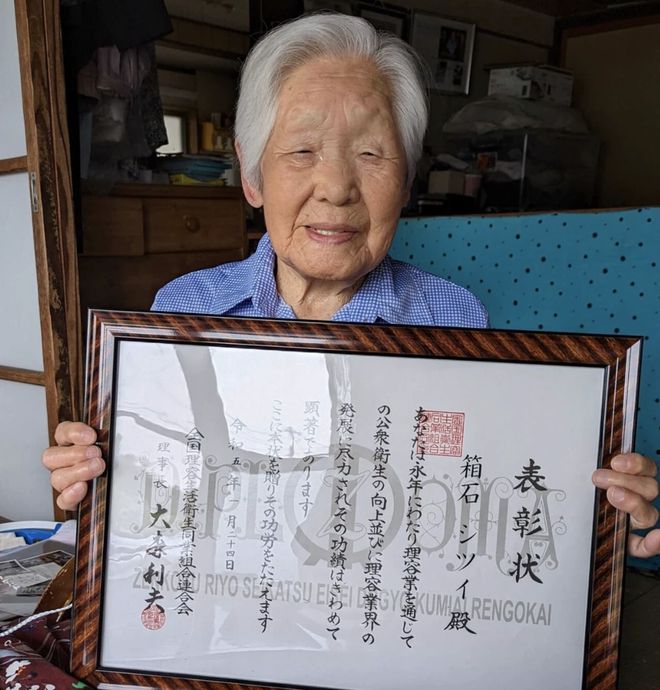 表彰状
箱石 シツイ殿
あなたは永年にわたり理容業を通じて
の公衆衛生の向上並びに理容業界の
発展に尽力されその功績はきわめて
顕著であります
ここに本状を贈りその功労をたたえます
令和五年 月二十四日
全国理容生活衛生同業組合連合会
理事長 大森利夫
DIPLOMA
ZENKOKU RIYO SEIKATSU EISEI DOGYO KUMIAI RENGOKAI